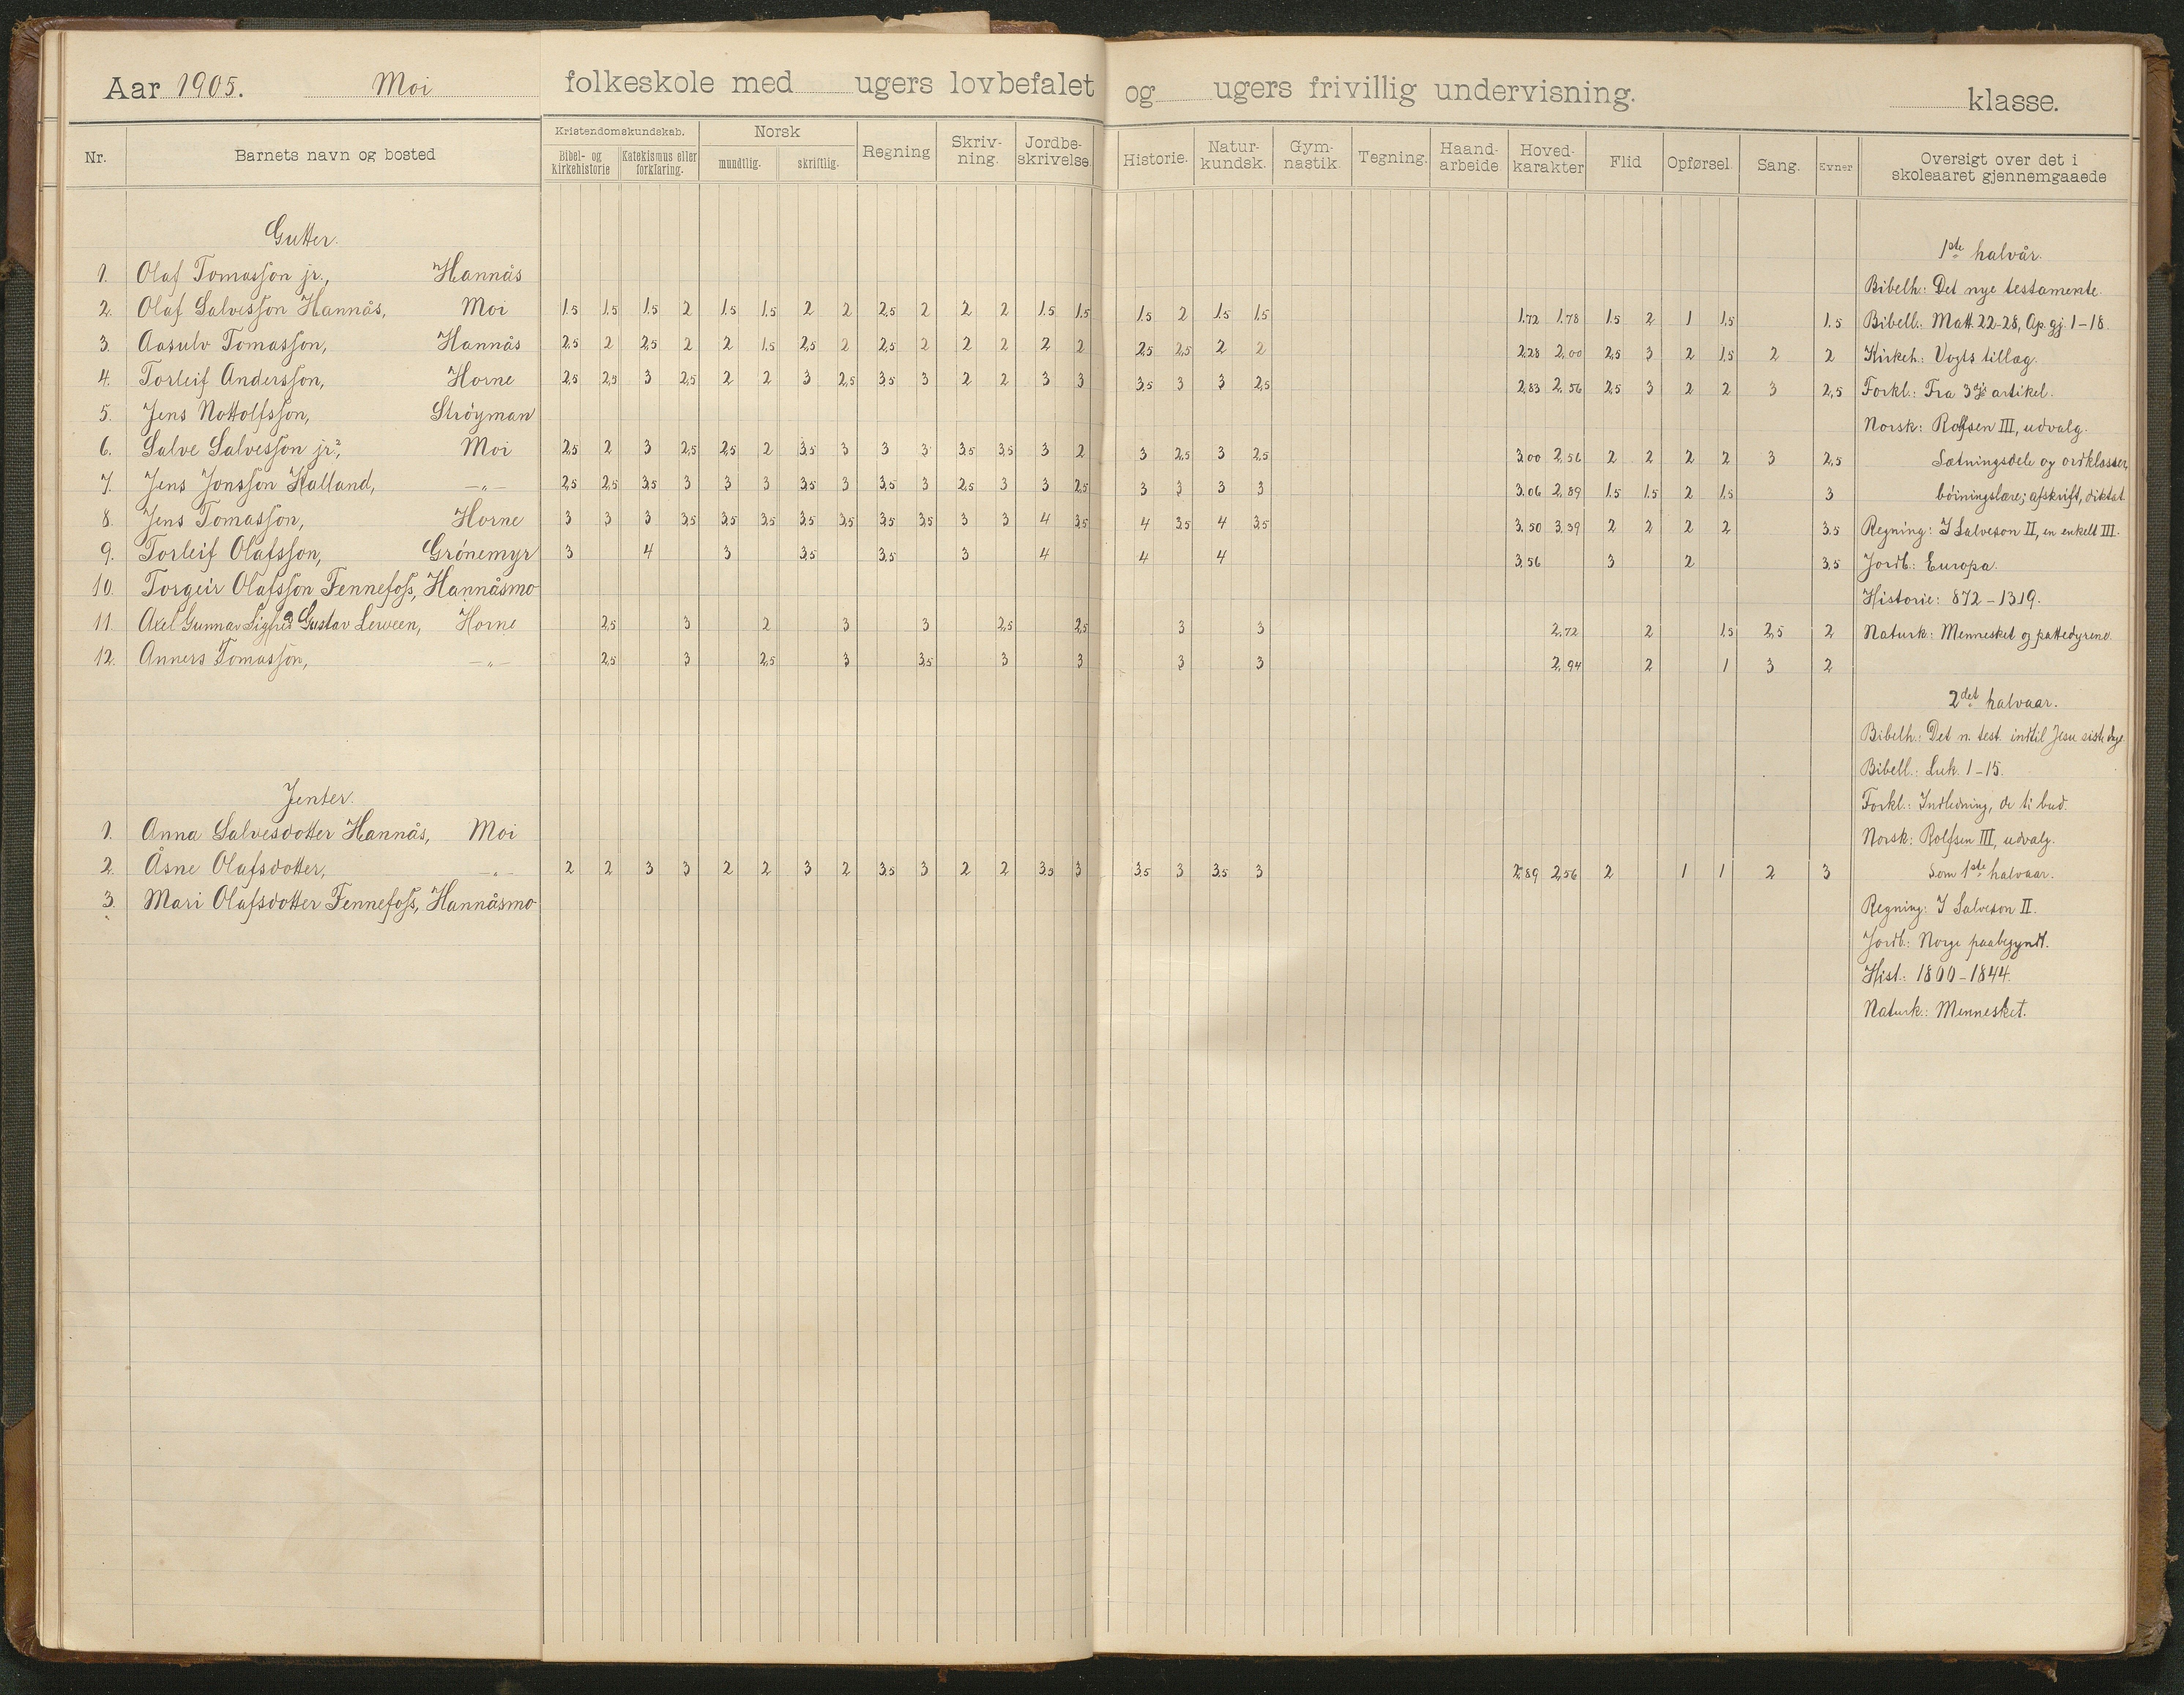 Aar 1905. Moi folkeskole med ugers lovbefalet og ugers frivillig undervisning. klasse.
Nr. Barnets navn og bosted Kristendomskundskab. Norsk Regning Skriv-ning. Jordbe-skrivelse Historie. Natur-kundsk. Gym-nastik. Tegning. Haand-arbeide Hoved-karakter Flid Opførsel. Sang. Evner Oversigt over det i skoleaaret gjennemgaaede
Bibel- og kirkehistorie Katekismus eller forklaring. mundtlig. skriftlig.
Gutter.
1. Olaf Tomasson jr., Hannås
2. Olaf Salvesson Hannås, Moi 1.5 1.5 1.5 2 1.5 1.5 2 2 2.5 2 2 2 1.5 1.5 1.5 2 1.5 1.5 1.72 1.78 1.5 2 1 1.5 1.5
3. Aasulv Tomasson, Hannås 2.5 2 2.5 2 2 1.5 2.5 2 2.5 2 2 2 2 2 2.5 2.5 2 2 2.28 2.00 2.5 3 2 1.5 2 2
4. Torleif Andersson, Horne 2.5 2.5 3 2.5 2 2 3 2.5 3.5 3 2 2 3 3 3.5 3 3 2.5 2.83 2.56 2.5 3 2 2 3 2.5
5. Jens Nottolfsson, Strøyman
6. Salve Salvesson jr., Moi 2.5 2 3 2.5 2.5 2 3.5 3 3 3 3.5 3.5 3 2 3 2.5 3 2.5 3.00 2.56 2 2 2 2 3 2.5
7. Jens Jonsson Kalland, -"- 2.5 2.5 3.5 3 3 3 3.5 3 3.5 3 2.5 3 3 2.5 3 3 3 3 3.06 2.89 1.5 1.5 2 1.5 3
8. Jens Tomasson, Horne 3 3 3 3.5 3.5 3.5 3.5 3.5 3.5 3.5 3 3 4 3.5 4 3.5 4 3.5 3.50 3.39 2 2 2 2 3.5
9. Torleif Olafsson, Grønemyr 3 4 3 3.5 3.5 3 4 4 4 3.56 3 2 3.5
10. Torgeir Olafsson Fennefoss, Hannåsmo
11. Axel Gunnar Sigfred Gustav Lerveen, Horne 2.5 3 2 3 3 2.5 2.5 3 3 2.72 2 1.5 2.5 2
12. Anners Tomasson, -"- 2.5 3 2.5 3 3.5 3 3 3 3 2.94 2 1 3 2
Jenter.
1. Anna Salvesdotter Hannås, Moi
2. Åsne Olafsdotter, -"- 2 2 3 3 2 2 3 2 3.5 3 2 2 3.5 3 3.5 3 3.5 3 2.89 2.56 2 1 1 2 3
3. Mari Olafsdotter Fennefoss, Hannåsmo
1ste halvår.
Bibelh.: Det nye testamente.
Bibell.: Matt. 22-28, Ap. gj. 1-18.
Kirkeh.: Vogts tillæg.
Forkl.: Fra 3dje artikel.
Norsk: Rolfsen III, udvalg.
Sætningsdele og ordklasser,
bøiningslære; afskrift, diktat
Regning: J Salveson II, en enkelt III.
Jordb.: Europa.
Historie: 872-1319.
Naturk.: Mennesket og pattedyrene.
2det halvaar.
Bibelh.: Det n. test. indtil Jesu siste dage
Bibell.: Luk. 1-15.
Forkl.: Indledning, de ti bud.
Norsk: Rolfsen III, udvalg.
Som 1ste halvaar.
Regning: J Salveson II.
Jordb.: Norge paabegyndt.
Hist.: 1800-1844.
Naturk.: Mennesket.